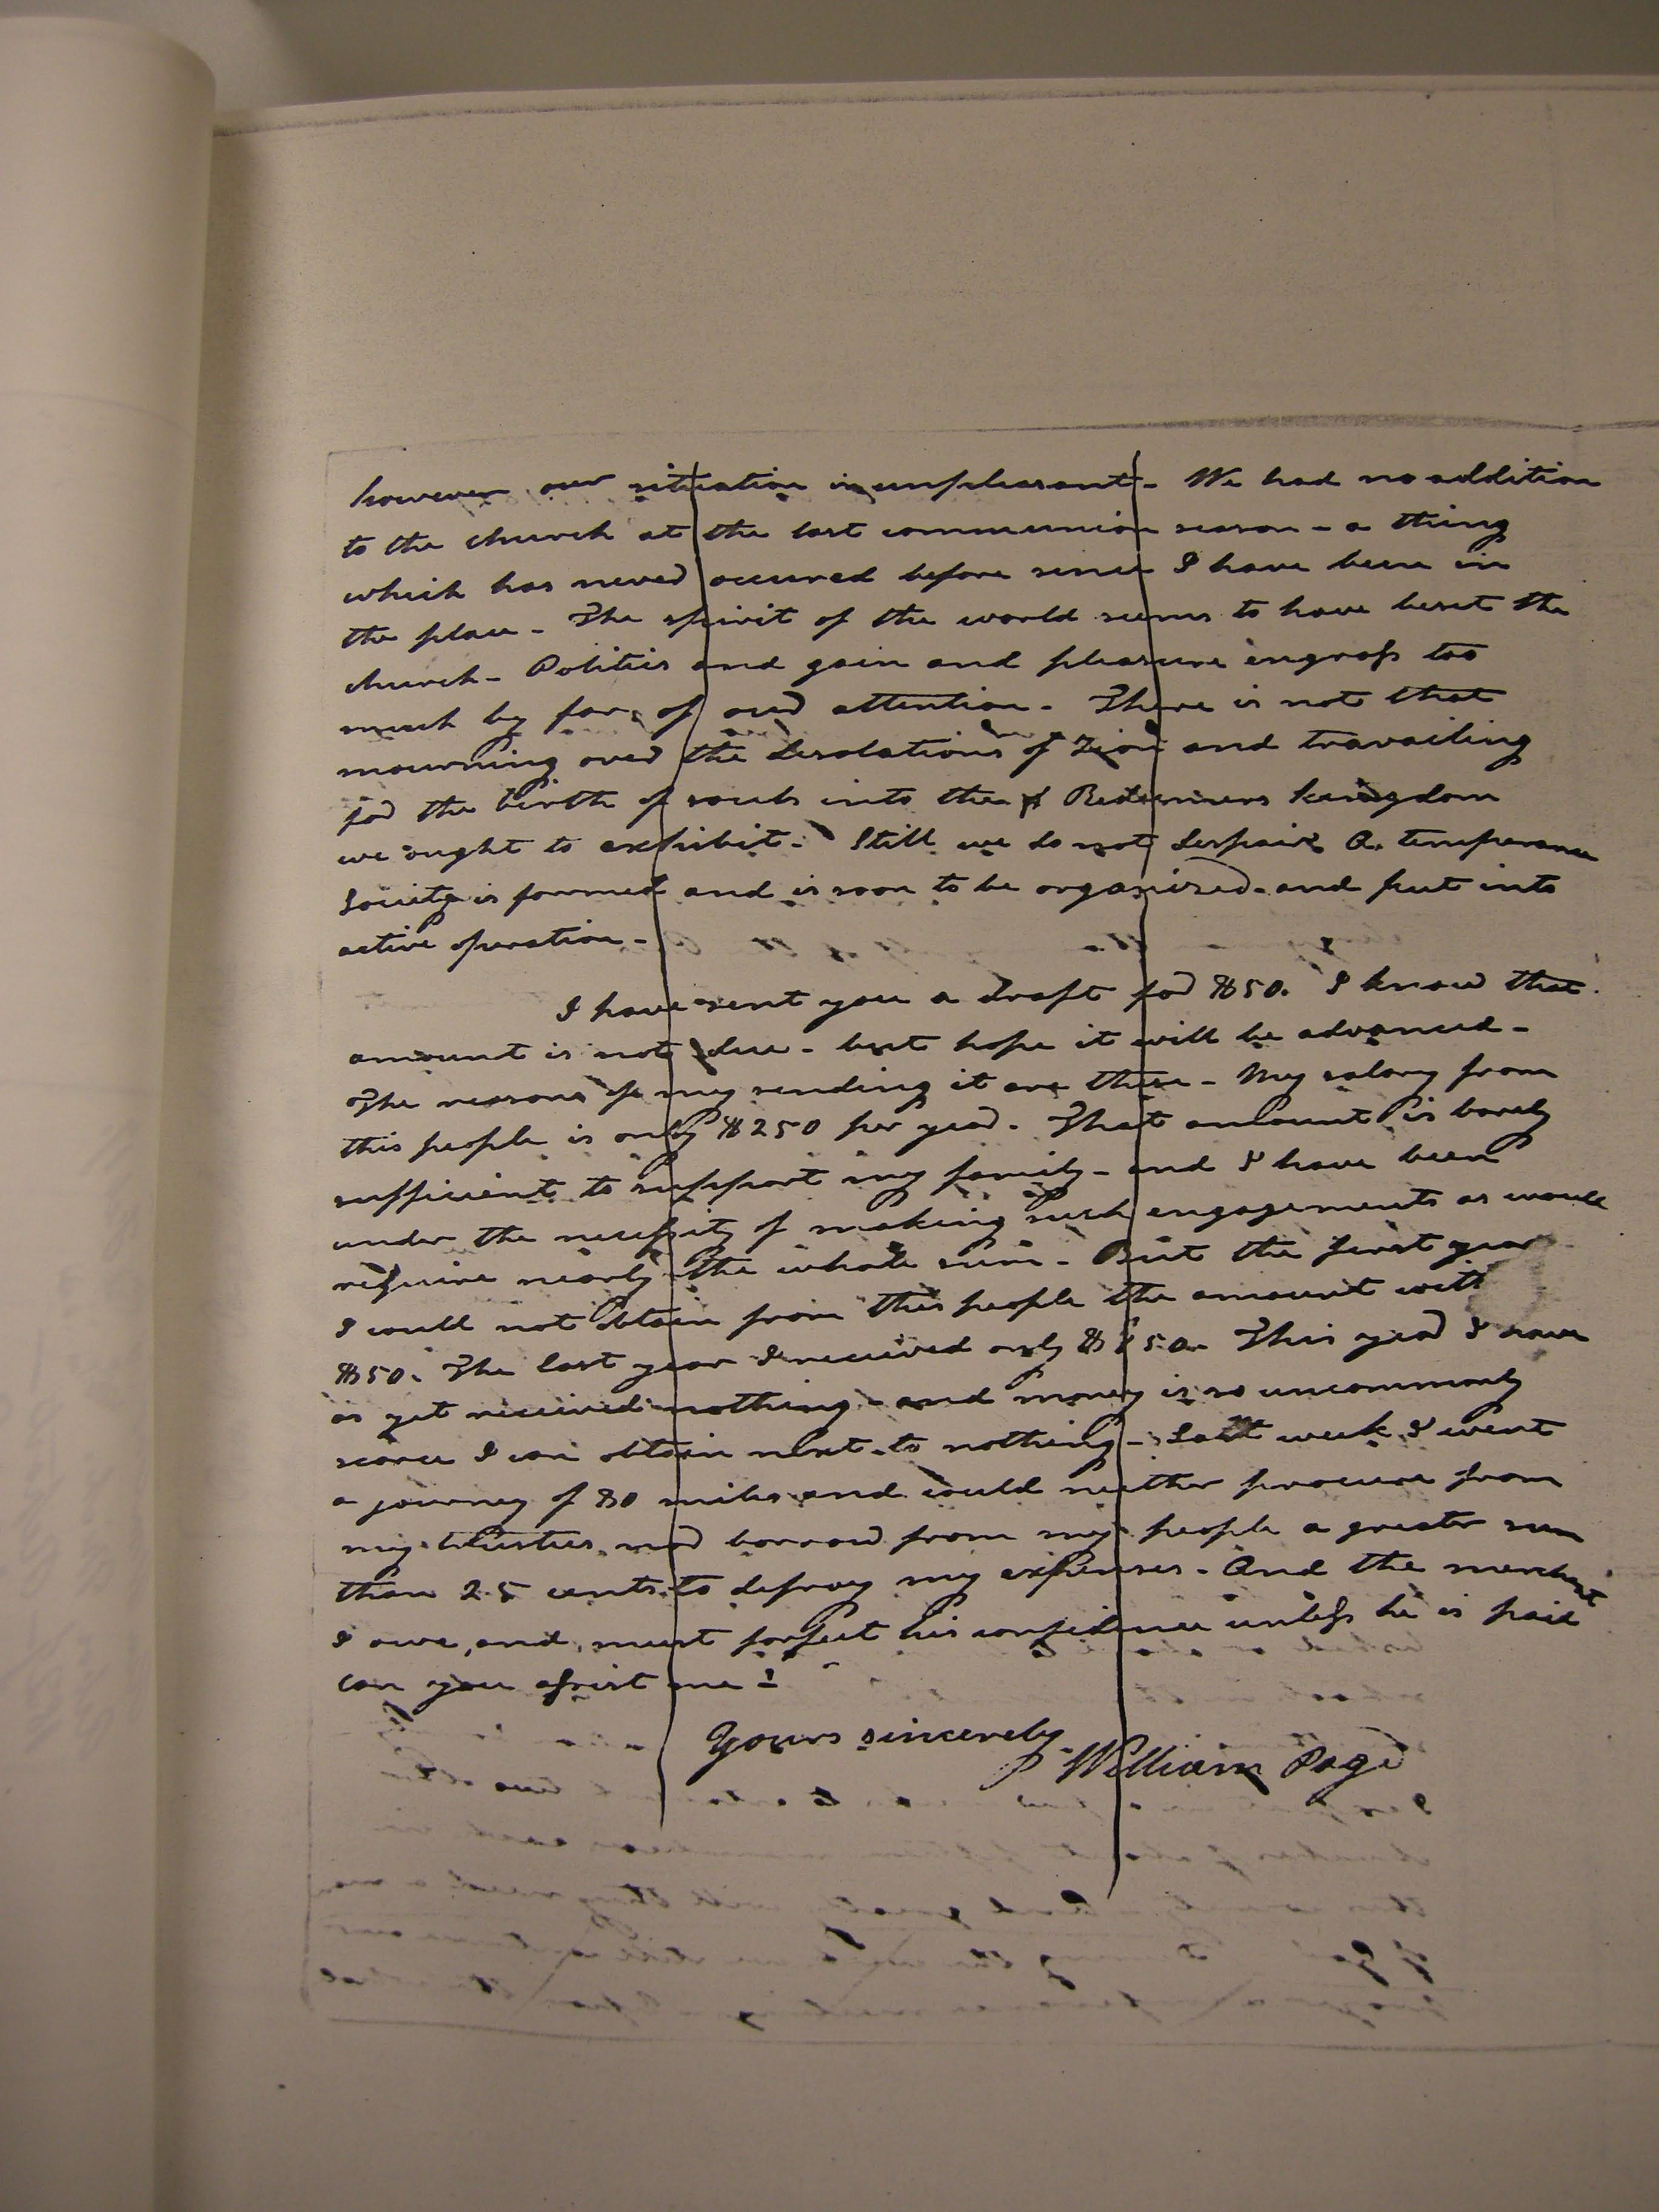 however our situation is unpleasant - We had no addition
to the church at the last communion season - a thing
which has never occured before since I have been in
the place - The spirit of the world seems to have beset the
church - Politics and gain and pleasure engross too
much by far of our attention - There is not that
mourning over the desolations of Zion and travailing
for the birth of souls into the Redeemers kingdom
we ought to exhibit - Still we do not despair A temperance
Society is formed and is soon to be organised - and put into
active operation -
I have sent you a draft for $50. I know that
amount is not due - but hope it will be advanced -
The reasons of my sending it are these - My salary from
this people is only $250 per year. That amount is barely
sufficient to support my family - and I have been
under the necessity of making such engagements as would
require nearly the whole sum - But the first year
I could not obtain from this people the amount with
$50. The last year I received only 50. This year I have
as yet received nothing - and money is so uncommonly
scarce I can obtain next to nothing - Last week I went
a journey of 80 miles and could neither procure from
my trustees nor borrow from my people a greater sum
than 25 cents to defray my expenses - And the merchant
I owe, and must forfeit his confidence unless he is paid
Can you assist me?
Yours sincerely
William Page